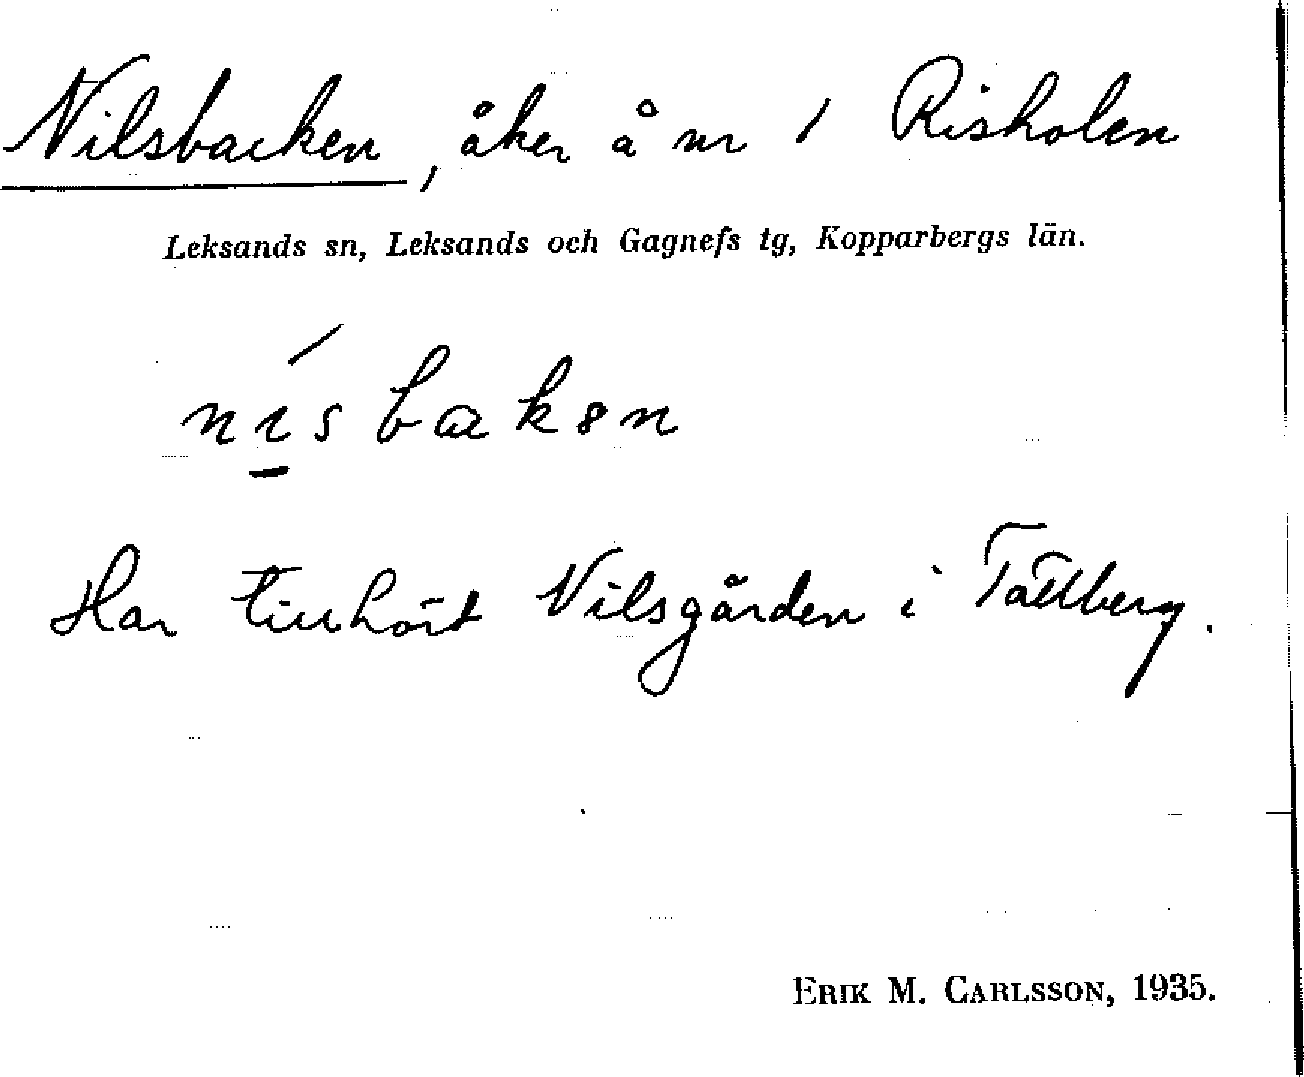 Nilsbacken, åker å nr 1 Risholen
Leksands sn, Leksands och Gagnefs tg, Kopparbergs län.
Har tillhört Nilsgården i Tällberg.
ERIK M. CARLSSON, 1935.